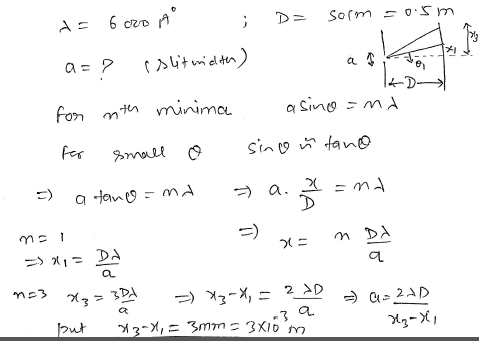 λ = 6000 A° ; D = 50cm = 0.5 m
a = ? (slit width)
a θ1 x1 x3
D
for nth minima a sinθ = nλ
for small θ sinθ ≈ tanθ
⇒ a tanθ = nλ ⇒ a. x/D = nλ
n = 1 ⇒ x = n Dλ/a
⇒ x1 = Dλ/a
n=3 x3 = 3Dλ/a ⇒ x3-x1 = 2λD/a ⇒ a = 2λD/x3-x1
put x3-x1 = 3mm = 3×10^-3 m